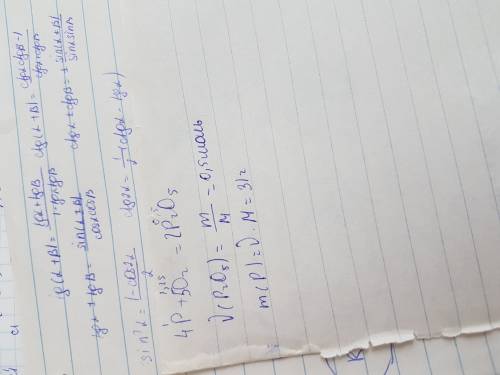 tg(α+β) = tgα+tgβ / 1-tgαtgβ ctg(α+β) = ctgαctgβ-1 / ctgα+ctgβ
tgα+tgβ = sin(α+β) / cosαcosβ ctgα+ctgβ = + sin(α+β) / sinα sinβ
sin²α = 1-cos2α / 2 ctg2α = 1/2 (ctgα - tgα)
1 1,25 0,5
4P + 5O₂ = 2P₂O₅
ν(P₂O₅) = m / M = 0,5 моль
m(P) = ν · M = 31 г